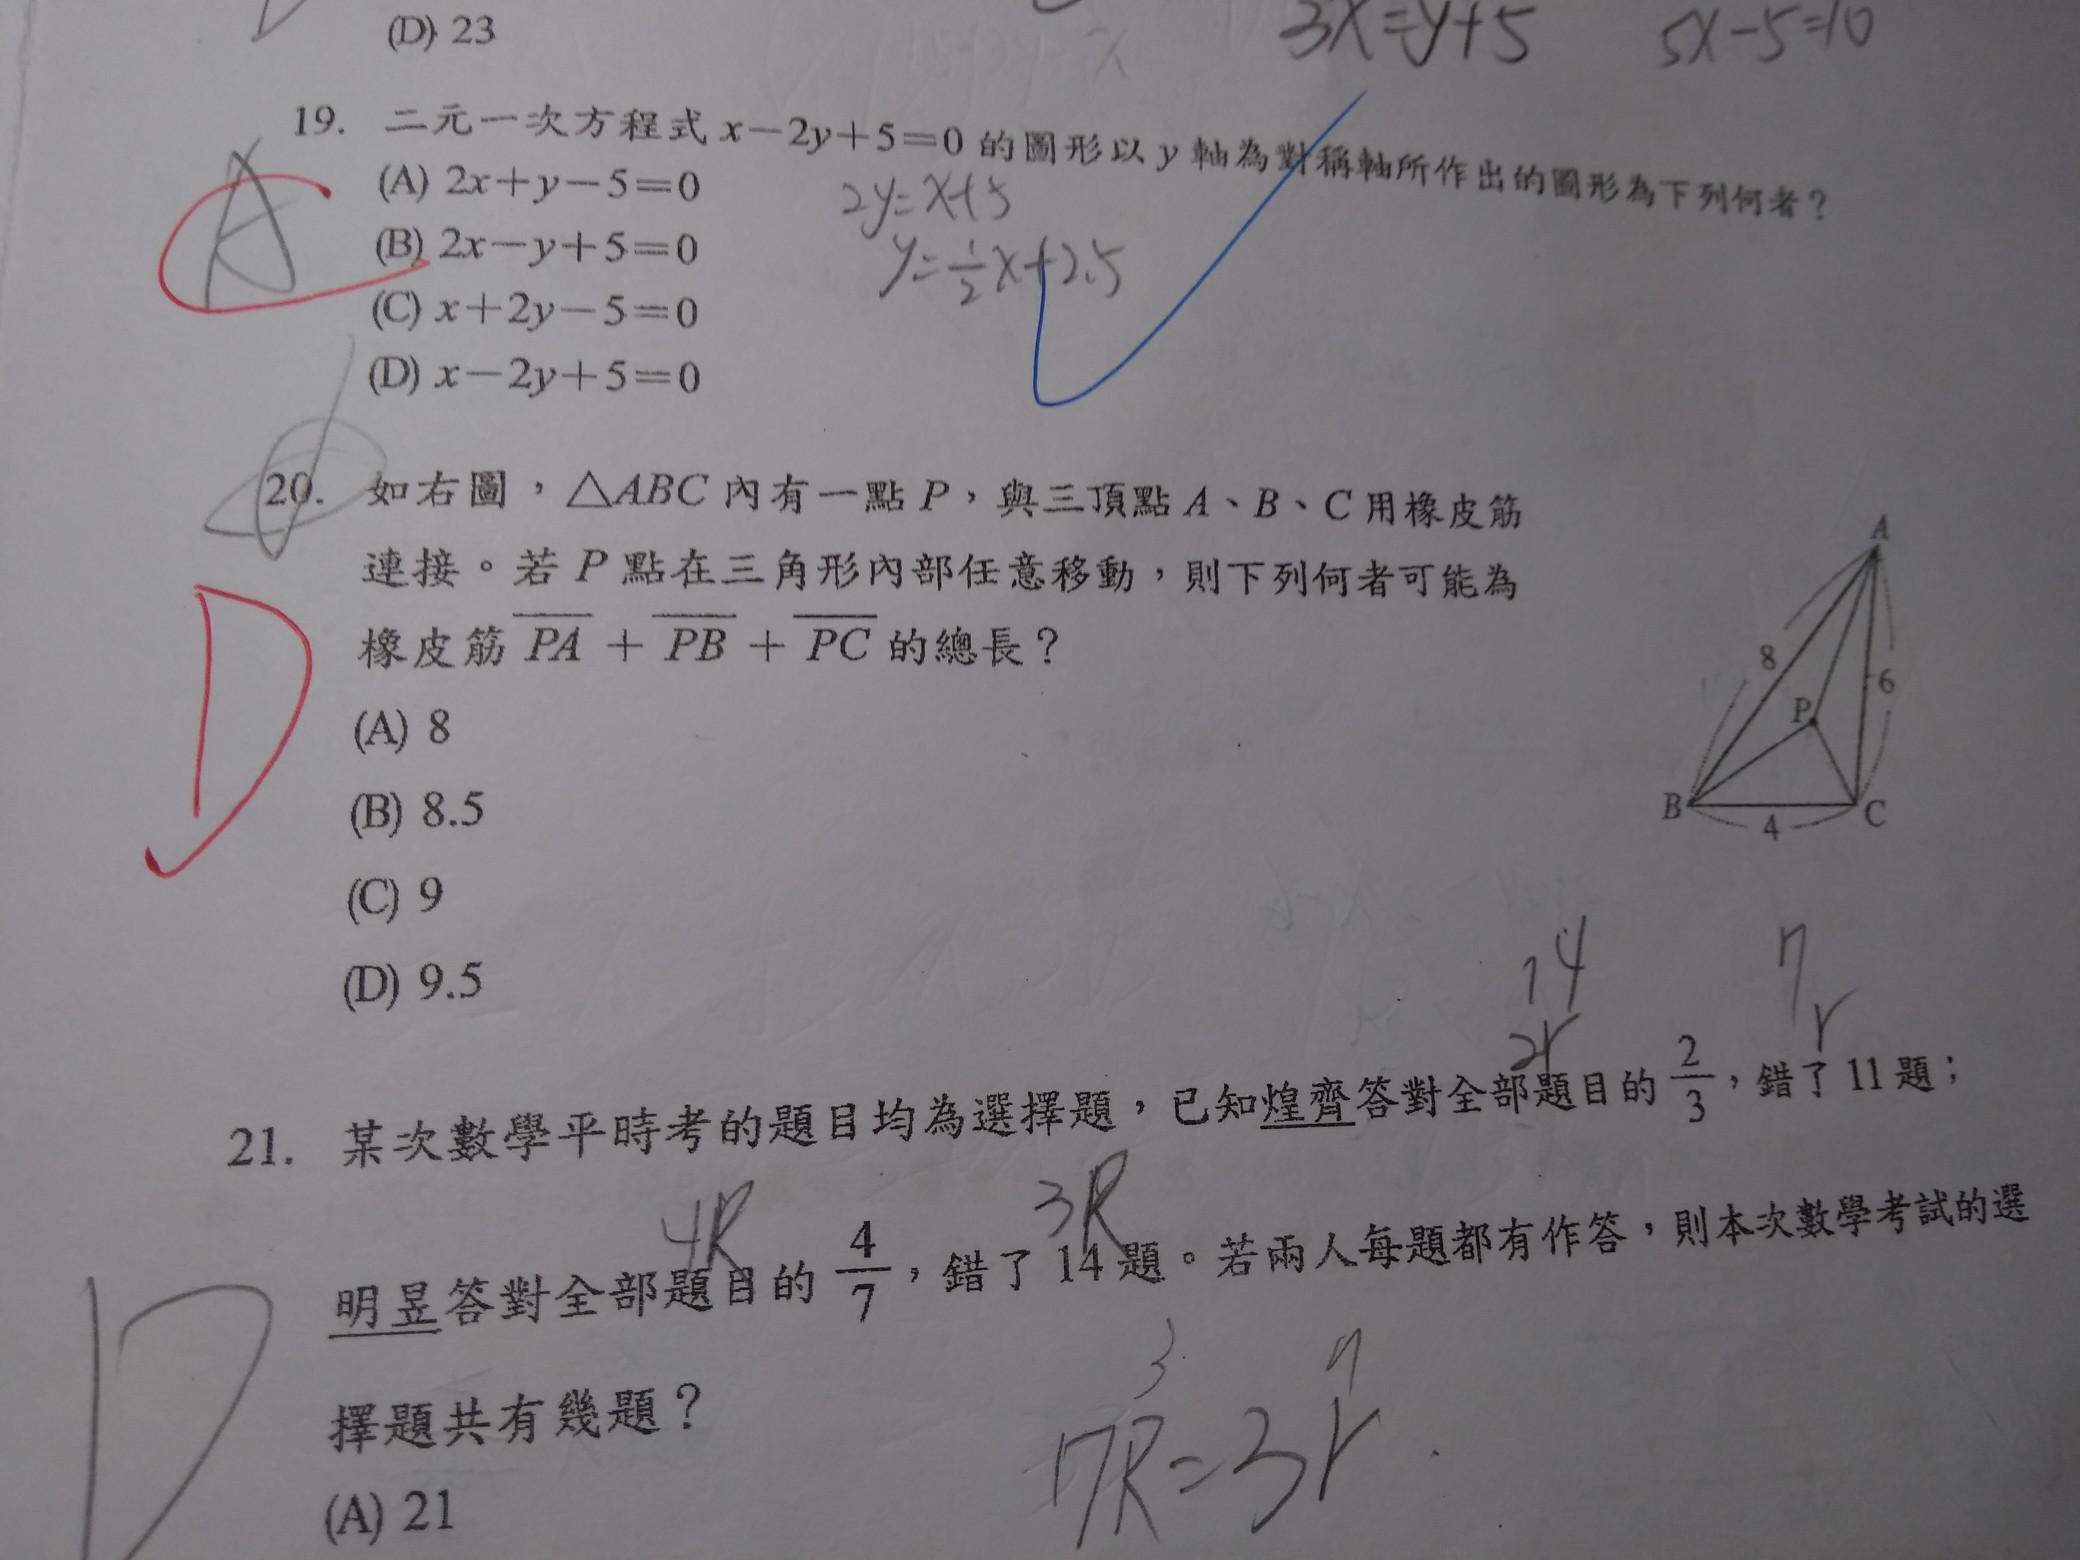 (D) 23
3x=y+5
5x-5=10
19. 二元一次方程式 x－2y＋5＝0 的圖形以 y 軸為對稱軸所作出的圖形為下列何者？
(A) 2x＋y－5＝0
2y=x+5
(B) 2x－y＋5＝0
y=½x+2.5
(C) x＋2y－5＝0
(D) x－2y＋5＝0
A
C
20. 如右圖，△ABC 內有一點 P，與三頂點 A、B、C 用橡皮筋
連接。若 P 點在三角形內部任意移動，則下列何者可能為
橡皮筋 PA ＋ PB ＋ PC 的總長？
D
(A) 8
(B) 8.5
(C) 9
(D) 9.5
A
8
6
P
B
C
4
14
7
2r
r
21. 某次數學平時考的題目均為選擇題，已知煌齊答對全部題目的 2/3，錯了 11 題；
4R
3R
明昱答對全部題目的 4/7，錯了 14 題。若兩人每題都有作答，則本次數學考試的選
擇題共有幾題？
3
7
7R=3r
D
(A) 21